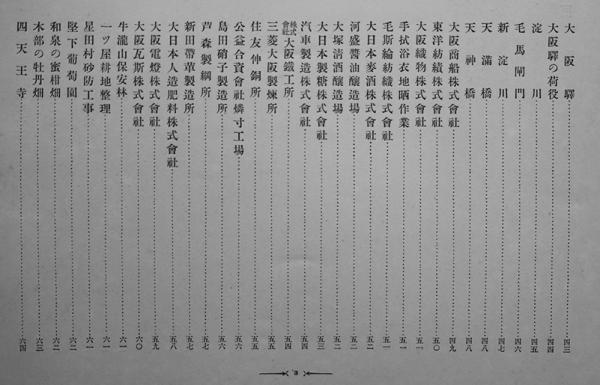 大阪驛……四三
大阪驛の荷役……四四
淀川……四四
毛馬閘門……四六
新淀川……四七
天滿橋……四八
天神橋……四八
大阪商船株式會社……四九
東洋紡績株式會社……五〇
大阪織物株式會社……五一
手拭浴衣地晒作業……五一
毛斯綸紡織株式會社……五一
大日本麥酒株式會社……五二
河盛醬油釀造場……五二
大塚清酒釀造場……五二
大日本製糖株式會社……五三
汽車製造株式會社……五四
株式會社大阪鐵工所……五四
三菱大阪製煉所……五五
住友伸銅所……五五
公益合資會社燐寸工場……五六
島田硝子製造所……五六
芦森製綱所……五七
新田帶革製造所……五七
大日本人造肥料株式會社……五八
大阪電燈株式會社……五九
大阪瓦斯株式會社……六〇
牛瀧山保安林……六一
一ツ屋耕地整理……六一
星田村砂防工事……六一
堅下葡萄園……六二
和泉の蜜柑畑……六二
木部の牡丹畑……六三
四天王寺……六四